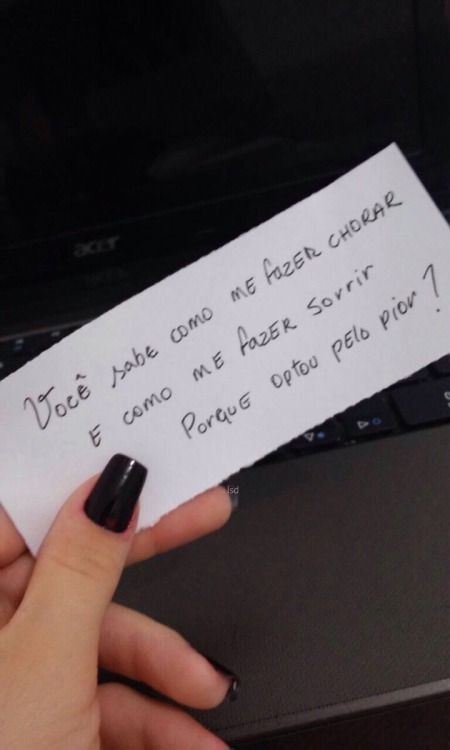 acer
Você sabe como me fazer chorar
e como me fazer sorrir
Porque optou pelo pior?
lsd